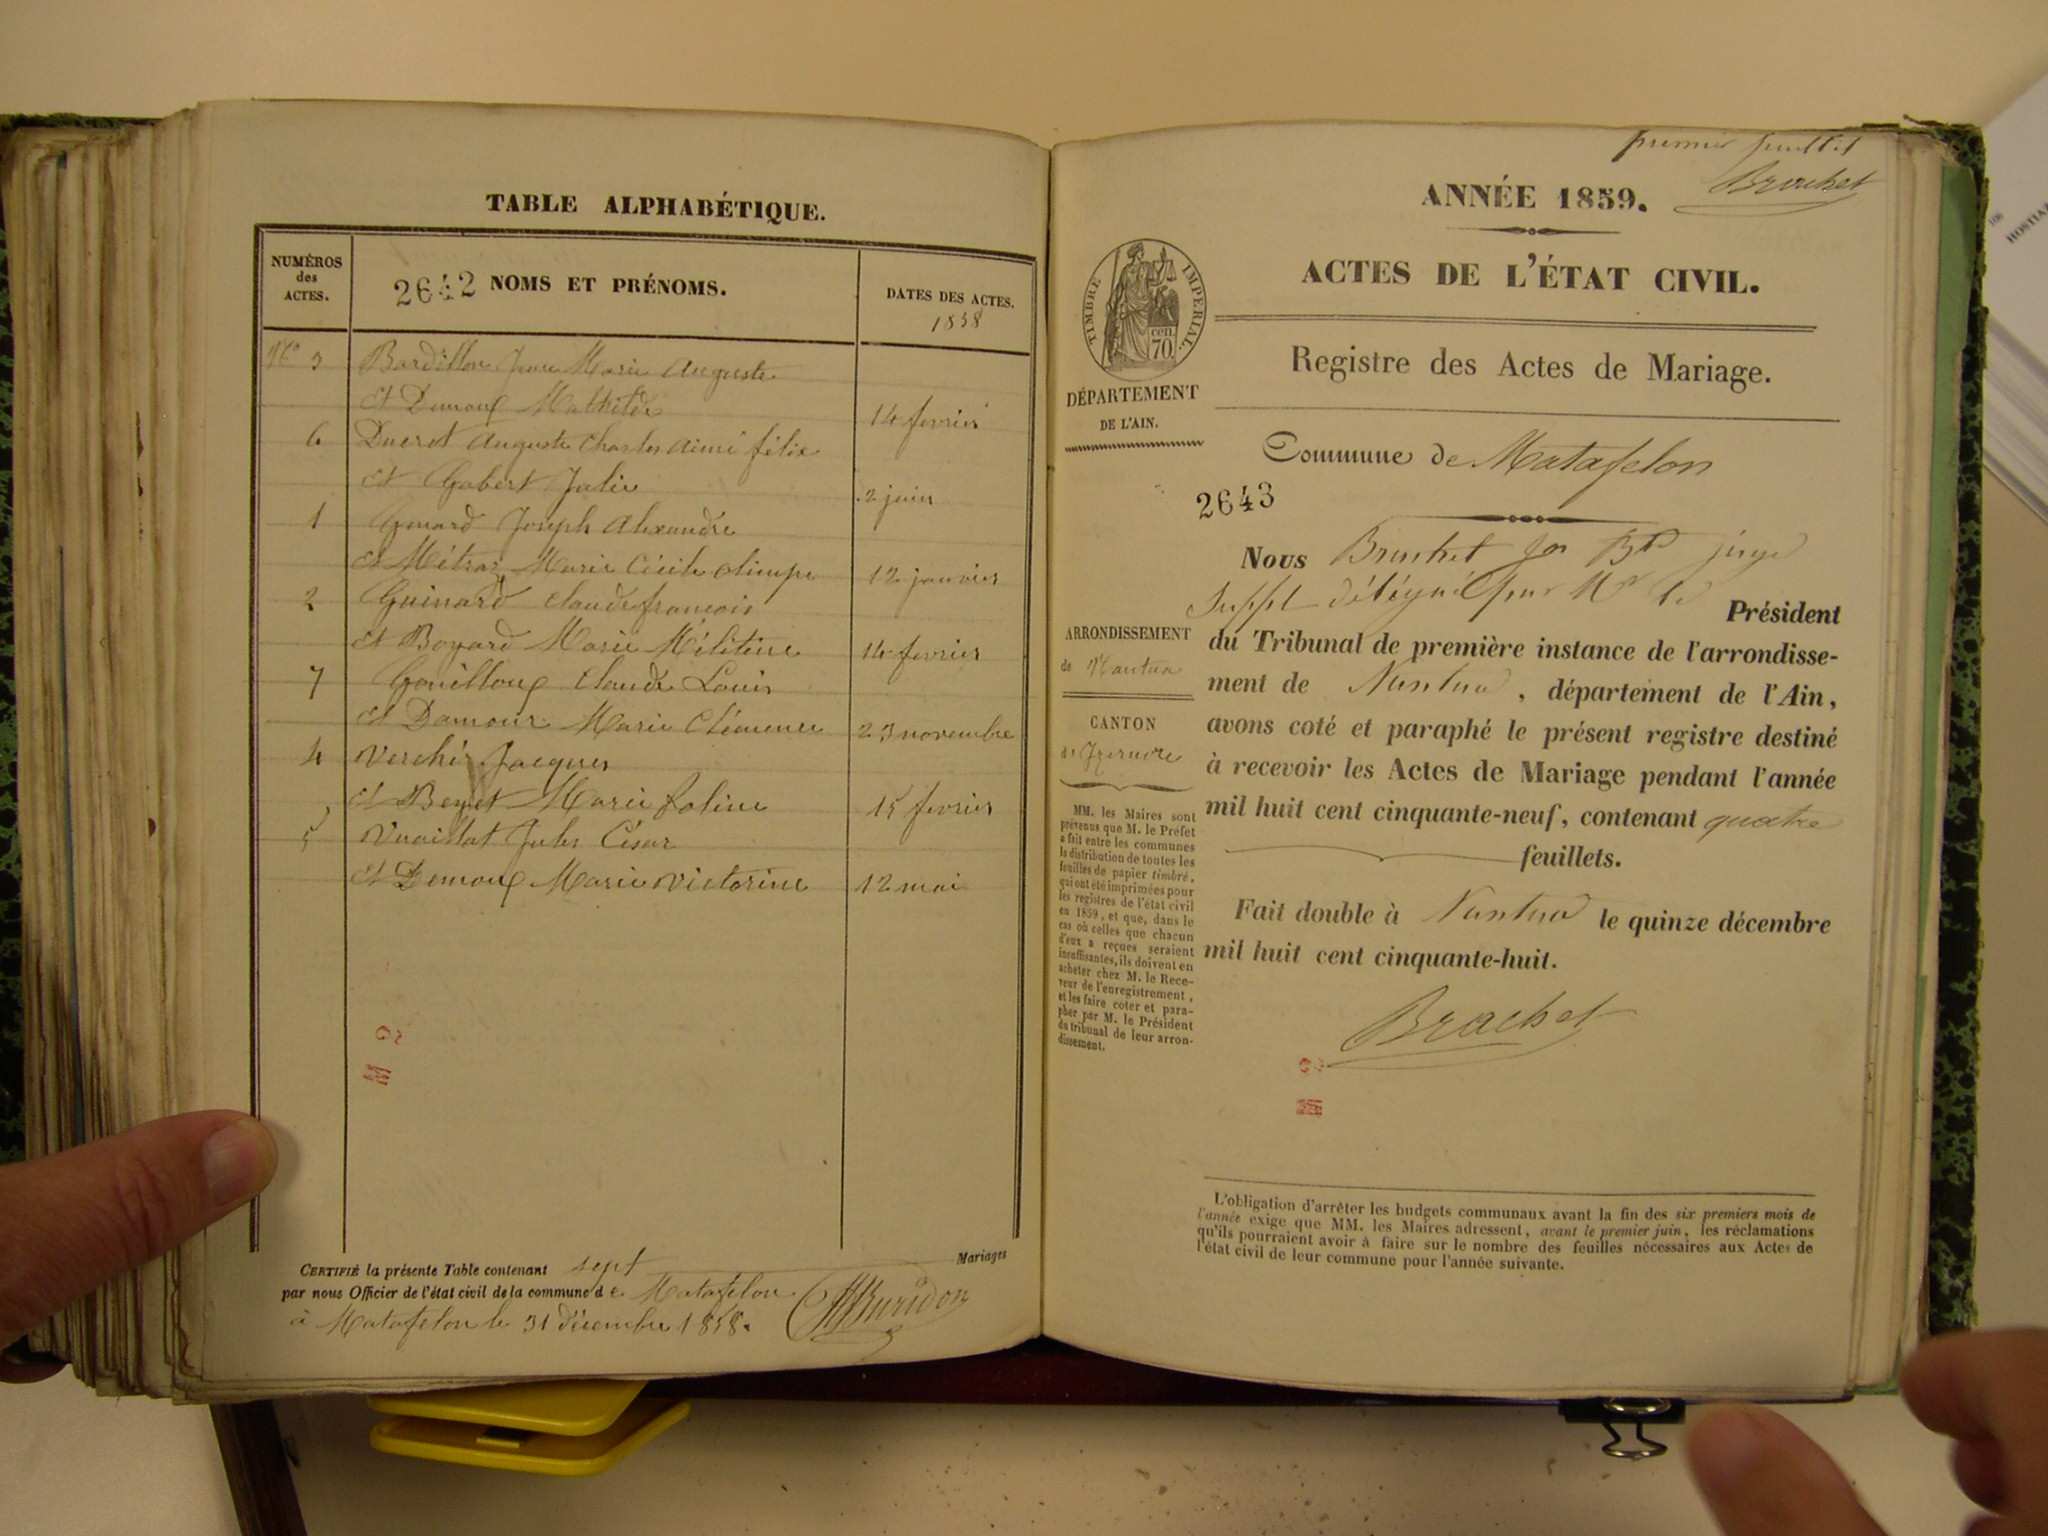 TABLE ALPHABÉTIQUE.
NUMÉROS
des
ACTES.
2642 NOMS ET PRÉNOMS.
DATES DES ACTES.
1858
N° 3 Bardillon Jean Marie Auguste
et Demoux Mathilde 14 fevrier
6 Ducret Auguste Charles Aimé félix
et Gobert Julie 2 juin
1 Genard Joseph Alexandre
et Métraz Marie Cécile olimpe 12 janvier
2 Guinard Claude françois
et Boyard Marie Mélitine 14 fevrier
7 Gouilloux Claude Louis
et Damour Marie Clémence 23 novembre
4 Verchère Jacques
et Beyet Marie foline 15 fevrier
5 Vuaillat Jules César
et Demoux Marie victorine 12 mai
M
CERTIFIÉ la présente Table contenant sept Mariages
par nous Officier de l'état civil de la commune de Matafelon
à Matafelon le 31 décembre 1858. Buridon
premier feuillet
Brachet
ANNÉE 1859.
ACTES DE L'ÉTAT CIVIL.
TIMBRE IMPÉRIAL.
70 cen.
DÉPARTEMENT
DE L'AIN.
Registre des Actes de Mariage.
Commune de Matafelon
2643
Nous Brachet Jn Bte juge
Suppt délégué par Mr le Président
du Tribunal de première instance de l'arrondisse-
ment de Nantua, département de l'Ain,
avons coté et paraphé le présent registre destiné
à recevoir les Actes de Mariage pendant l'année
mil huit cent cinquante-neuf, contenant quatre
feuillets.
Fait double à Nantua le quinze décembre
mil huit cent cinquante-huit.
Brachet
ARRONDISSEMENT
de Nantua
CANTON
de Izernore
MM. les Maires sont
prévenus que M. le Préfet
a fait entre les communes
la distribution de toutes les
feuilles de papier timbré,
qui ont été imprimées pour
les registres de l'état civil
en 1859, et que, dans le
cas où celles que chacun
d'eux a reçues seraient
insuffisantes, ils doivent en
acheter chez M. le Rece-
veur de l'enregistrement,
et les faire coter et para-
pher par M. le Président
du tribunal de leur arron-
dissement.
L'obligation d'arrêter les budgets communaux avant la fin des six premiers mois de
l'année exige que MM. les Maires adressent, avant le premier juin, les réclamations
qu'ils pourraient avoir à faire sur le nombre des feuilles nécessaires aux Actes de
l'état civil de leur commune pour l'année suivante.